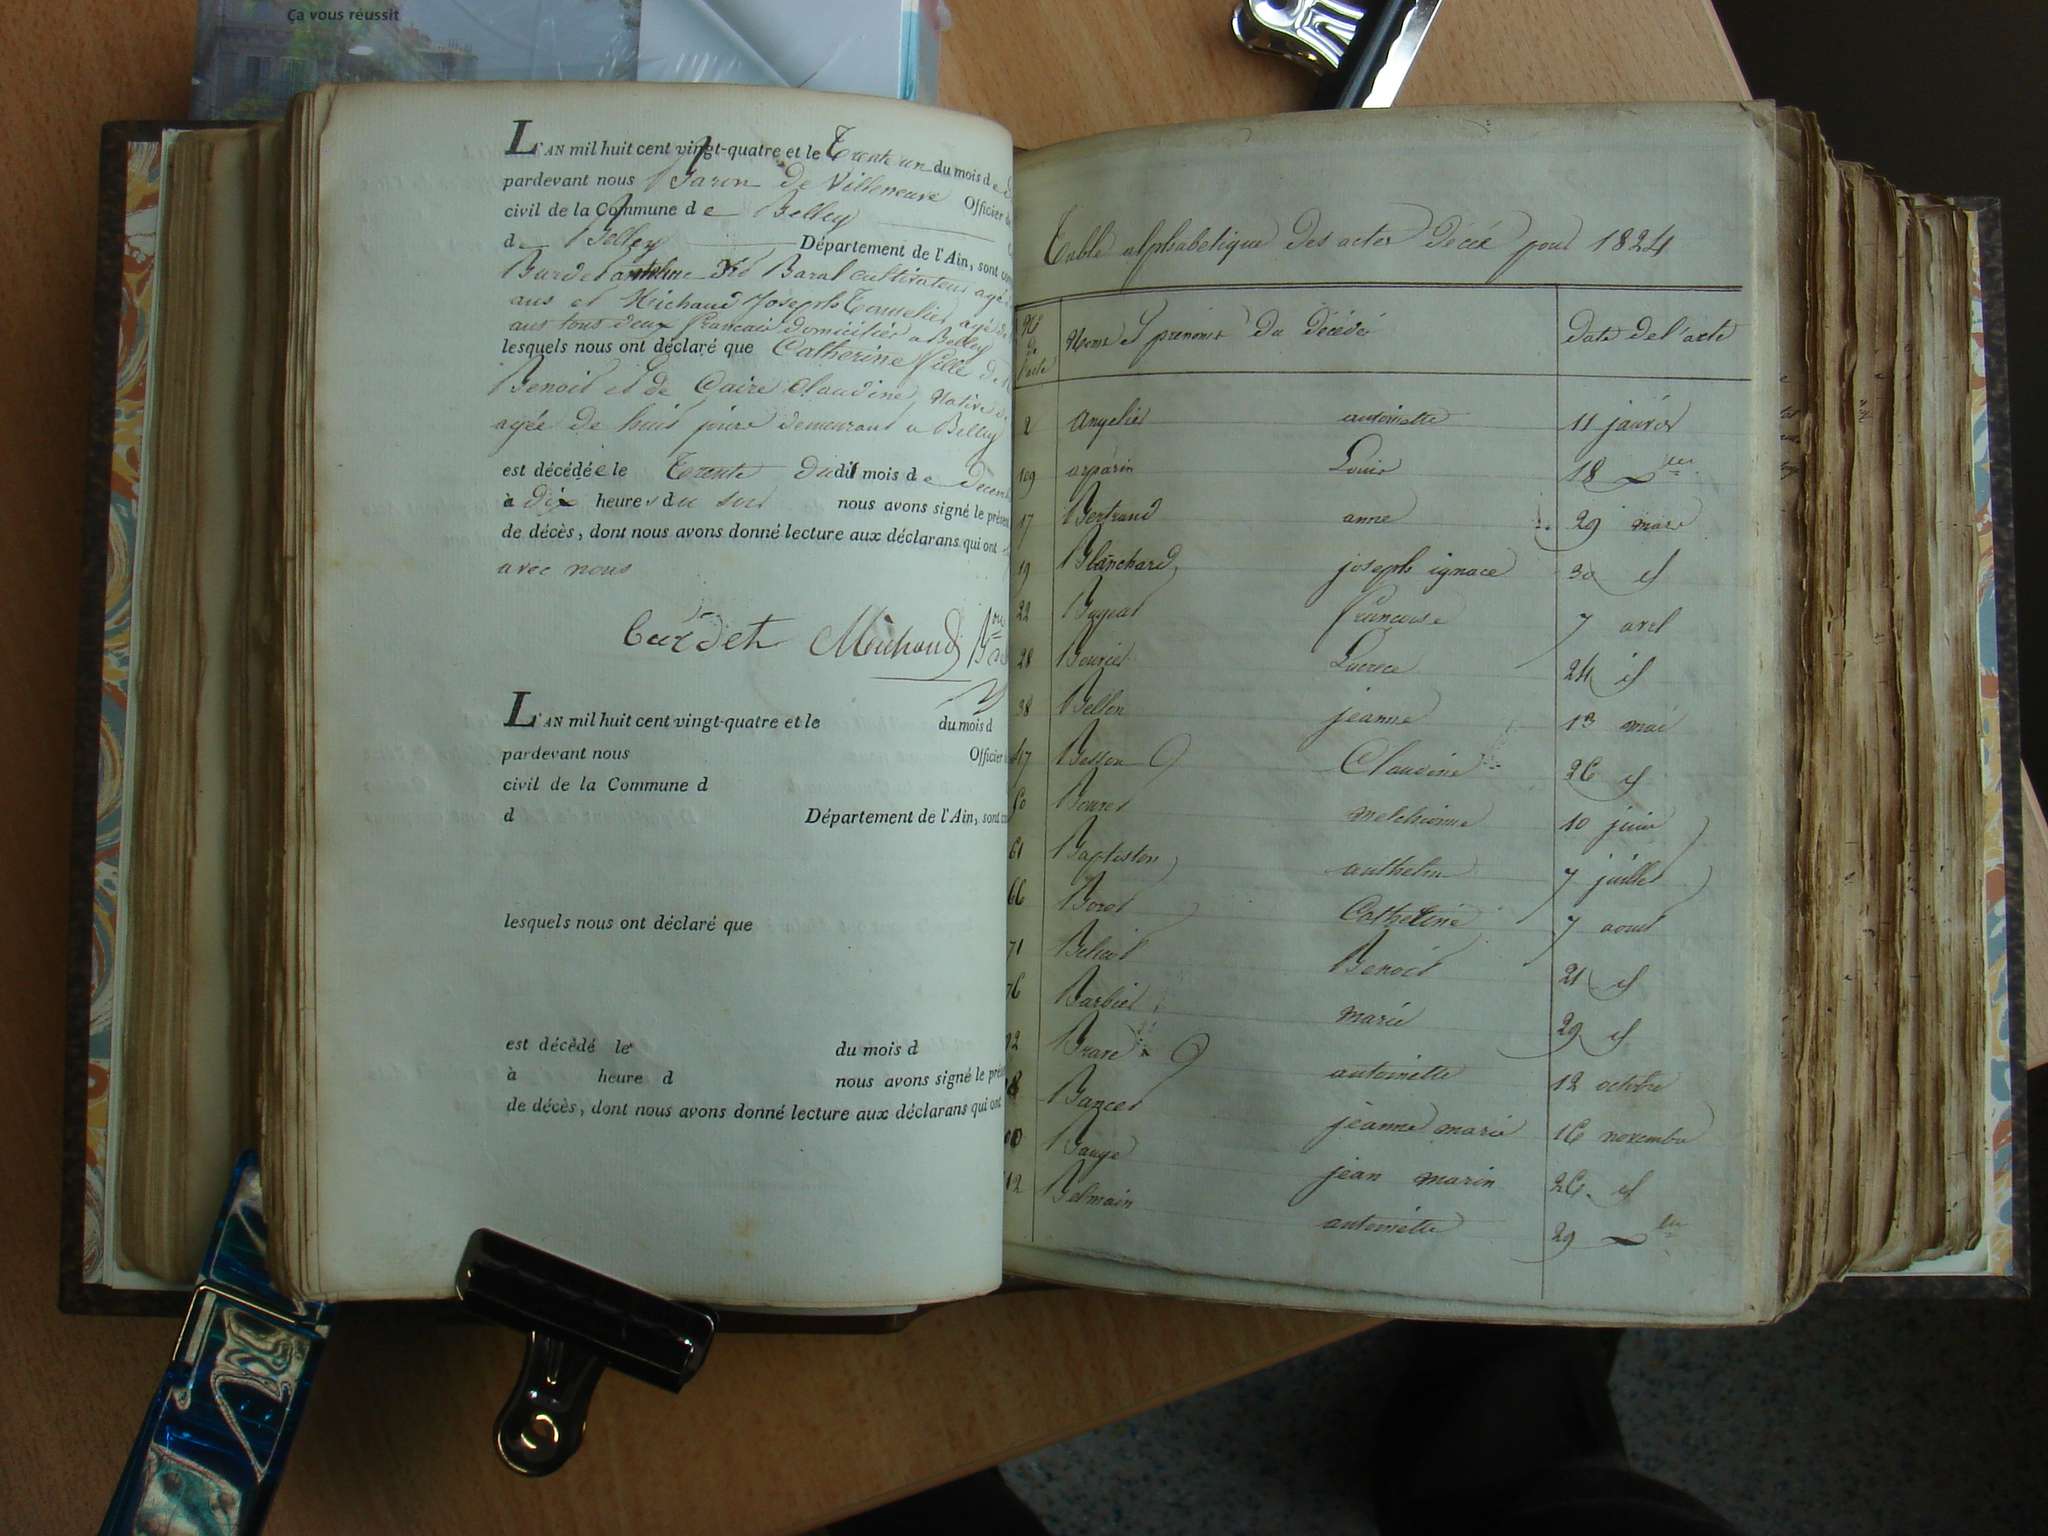 Ça vous réussit
L'AN mil huit cent vingt-quatre et le Trente un du mois de
pardevant nous Baron de Villeneuve Officier
civil de la Commune de Belley
de Belley Département de l'Ain, sont
Burdet antelme dit Baral cultivateur agé
ans et Michaud Joseph Tonnelier agé de
ans tous deux francais domiciliés a Belley
lesquels nous ont déclaré que Catherine fille de
Benoit et de Caire Claudine, Native de
agée de huit jours demeurant a Belley
est décédée le Trente dudit mois de Decem
à dix heures du soir nous avons signé le présen
de décès, dont nous avons donné lecture aux déclarans qui ont
avec nous
Burdet Michaud
L'AN mil huit cent vingt-quatre et le du mois d
pardevant nous Officier
civil de la Commune d
d Département de l'Ain, sont
lesquels nous ont déclaré que
est décédé le du mois d
à heure d nous avons signé le prése
de décès, dont nous avons donné lecture aux déclarans qui ont
Table alphabetique des actes décés pour 1824
No de l'acte Noms et prénoms du décédé date de l'acte
2 Angelier antoinette 11 janvier
109 arparin Louis 18 Xbre
17 Bertrand anne 29 mars
19 Blanchard joseph ignace 30 id
22 Bugeat francoise 7 avril
28 Bouvier Lucrece 24 id
38 Bellon jeanne 13 mai
47 Bellon Claudine 26 id
50 Bouvet melchionne 10 juin
61 Baptiston anthelme 7 juillet
66 Borot Catherine 7 aout
71 Benoit 21 id
76 Barbier marie 29 id
92 antoinette 12 octobre
98 Bancet jeanne marie 16 novembre
100 Bauge jean marin 26 id
112 Belmain antoinette 29 Xbre